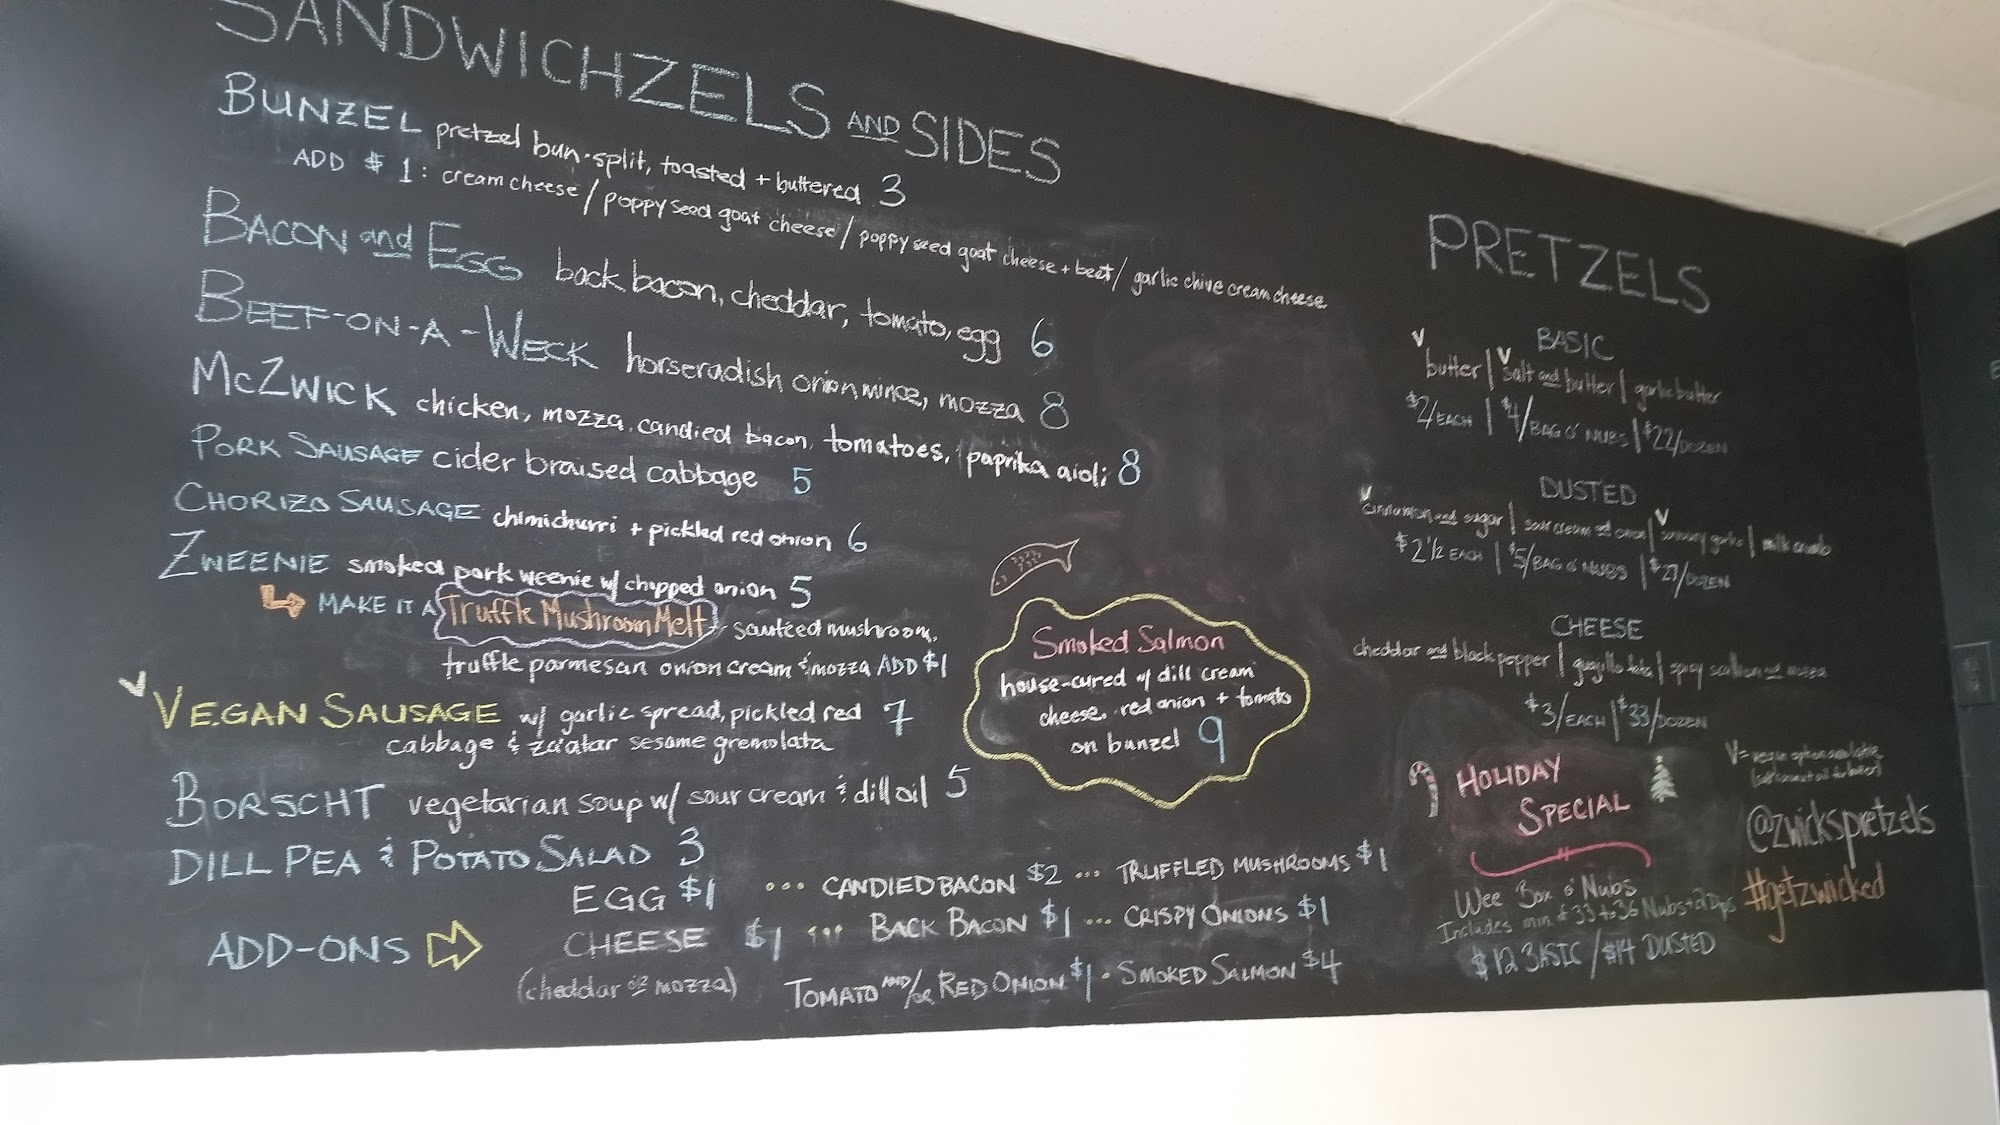 SANDWICHZELS AND SIDES
BUNZEL pretzel bun-split, toasted + buttered 3
ADD $1: cream cheese / poppy seed goat cheese / poppy seed goat cheese + beet / garlic chive cream cheese
BACON and EGG back bacon, cheddar, tomato, egg 6
BEEF-ON-A-WECK horseradish onion mince, mozza 8
McZWICK chicken, mozza, candied bacon, tomatoes, paprika aioli 8
PORK SAUSAGE cider braised cabbage 5
CHORIZO SAUSAGE chimichurri + pickled red onion 6
ZWEENIE smoked pork weenie w/ chopped onion 5
MAKE IT A Truffle Mushroom Melt - sautéed mushroom,
truffle parmesan onion cream & mozza ADD $1
V VEGAN SAUSAGE w/ garlic spread, pickled red 7
cabbage & za'atar sesame gremolata
BORSCHT vegetarian soup w/ sour cream & dill oil 5
DILL PEA & POTATO SALAD 3
Smoked Salmon
house-cured w/ dill cream
cheese, red onion + tomato
on bunzel 9
ADD-ONS
EGG $1 ... CANDIED BACON $2 ... TRUFFLED MUSHROOMS $1
CHEESE $1 ... BACK BACON $1 ... CRISPY ONIONS $1
(cheddar or mozza) TOMATO AND/OR RED ONION $1 · SMOKED SALMON $4
PRETZELS
BASIC
V butter | V salt and butter | garlic butter
$2/EACH | $4/BAG O' NUBS | $22/DOZEN
DUSTED
V cinnamon and sugar | sour cream and onion | V savoury garlic | milk crumb
$2 1/2 EACH | $5/BAG O' NUBS | $27/DOZEN
CHEESE
cheddar and black pepper | guajillo feta | spicy scallion and mozza
$3/EACH | $33/DOZEN
V = vegan option available
HOLIDAY
SPECIAL
Wee Box o' Nubs
Includes min. of 33 to 36 Nubs + 2 Dips
$12 BASIC / $14 DUSTED
@zwickspretzels
#getzwicked